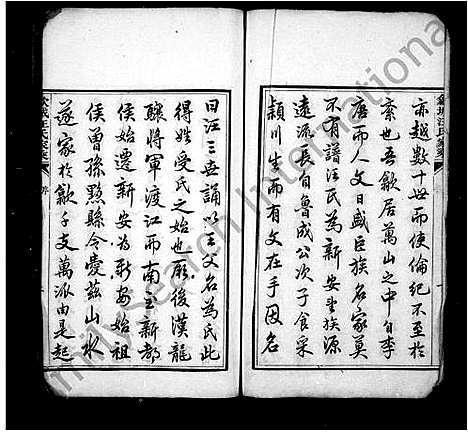 亦越數十世而使倫紀不至於
紊也吾歙居萬山之中自李
唐而人文日盛巨族名家莫
不有譜汪氏為新安望族源
遠流長自魯成公次子食采
潁川生而有文在手因名
曰汪三世誦以王父名為氏此
得姓受氏之始也厥後漢龍
驤將軍渡江而南主新都
侯始遷新安為新安始祖
侯曾孫黟縣令愛茲山水
遂家於歙千支萬派由是起
歙城汪氏家乘
序
FamilySearch International